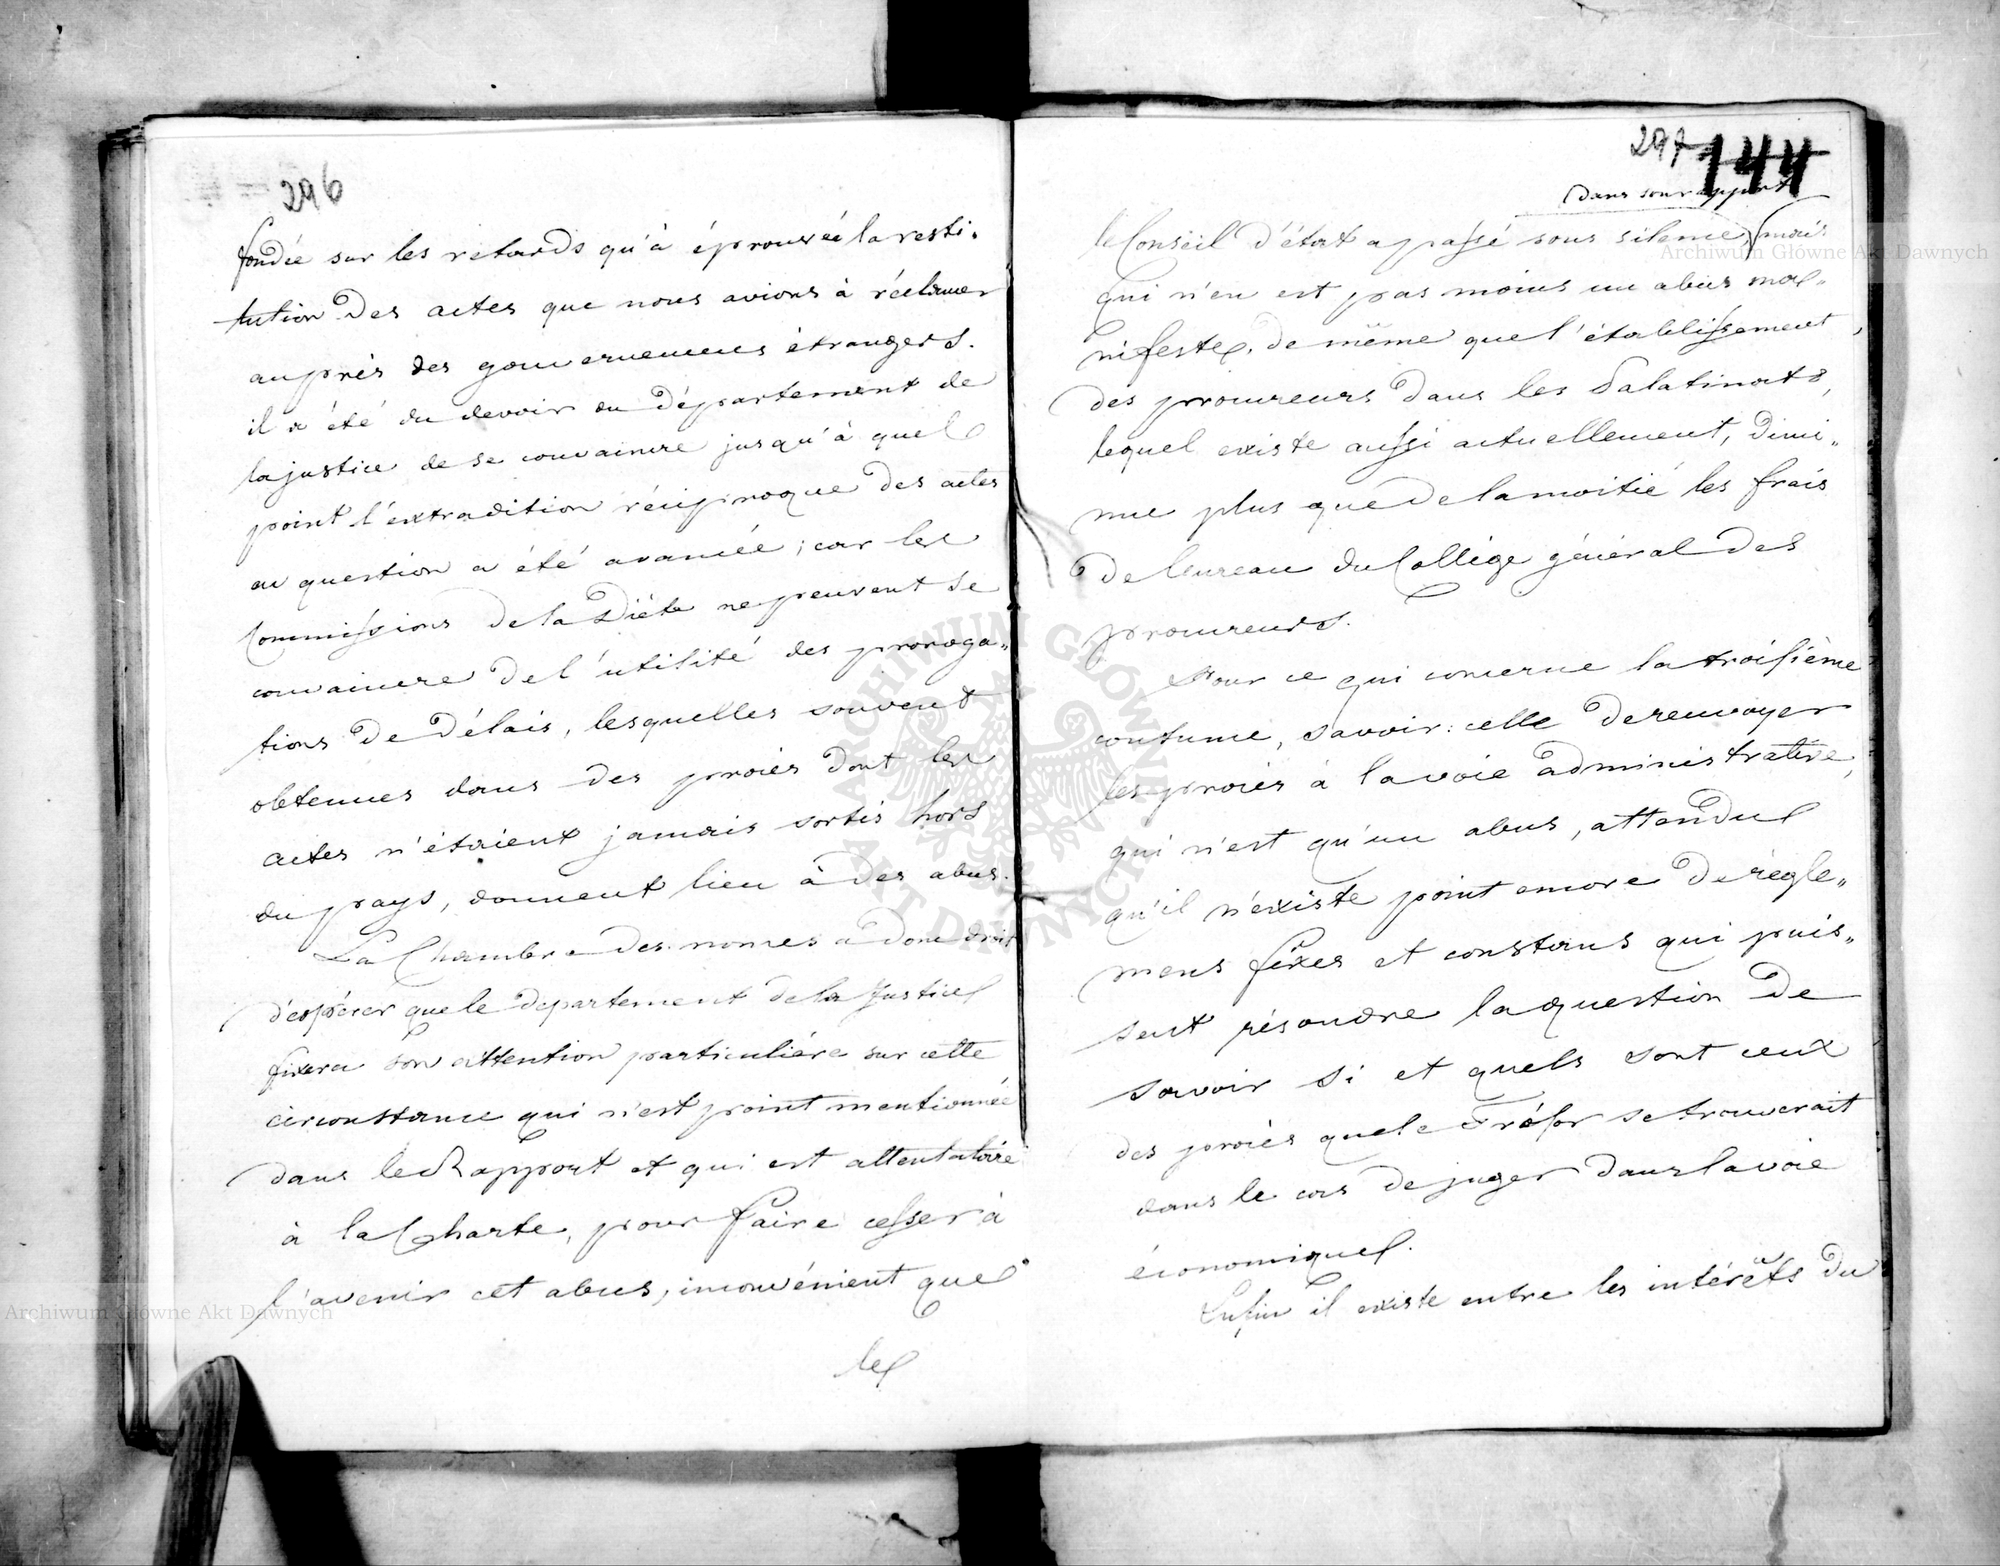 296
fondée sur les retards qu'à éprouvée la resti-
tution des actes que nous avions à réclamer
auprès des gouvernemens étrangers.
il a été du devoir du Département de
la justice de se convaincre jusqu'à quel
point l'extradition réciproque des actes
en question a été avancée; car les
Commissions de la Diète ne peuvent se
convaincre de l'utilité des proroga„
tions de délais, lesquelles souvent
obtenues dans des procès dont les
actes n'étaient jamais sortis hors
du pays, donnent lieu à des abus.
La Chambre des nonces a donc droit
d'espérer que le département de la Justice
fixera son attention particulière sur cette
circonstance qui n'est point mentionnée
dans le Rapport et qui est attentatoire
à la Charte, pour faire cesser à
l'avenir cet abus, inconvénient que
le
297 144
Dans son rapport
le Conseil d'état a passé sous silence, mais
qui n'en est pas moins un abus ma„
nifeste, de même que l'établissement
des procureurs dans les Palatinats,
lequel existe aussi actuellement, dimi„
nue plus que de la moitié les frais
de bureau du Collège général des
procureurs.
Pour ce qui concerne la troisième
coutume, savoir: celle de renvoyer
les procès à la voie administrative,
qui n'est qu'un abus, attendu
qu'il n'existe point encore de règle„
mens fixes et constans qui puis„
sent résoudre la question de
savoir si et quels sont ceux
des procès que le Trésor se trouverait
dans le cas de juger dans la voie
économique.
Enfin il existe entre les intérêts du
Archiwum Główne Akt Dawnych
Archiwum Główne Akt Dawnych
ARCHIWUM GŁÓWNE AKT DAWNYCH